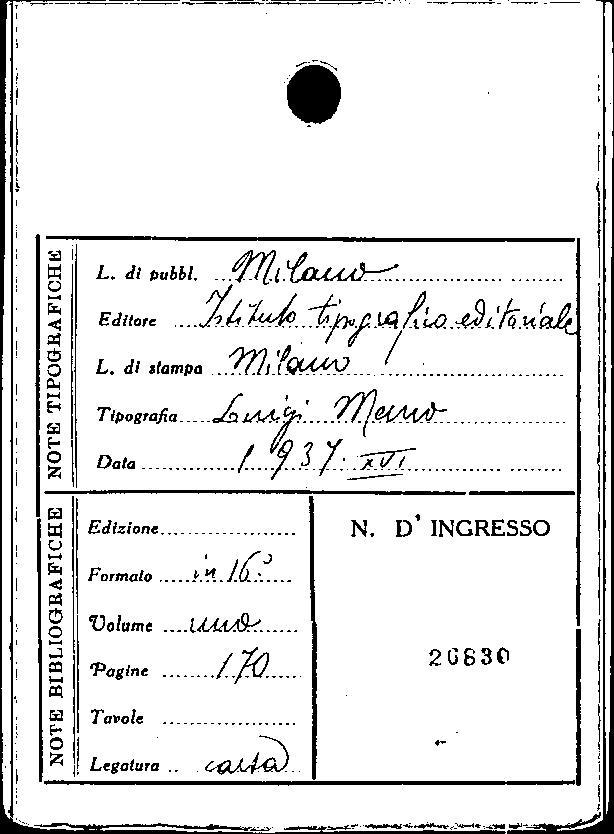 NOTE TIPOGRAFICHE
L. di pubbl. Milano
Editore Istituto tipografico editoriale
L. di stampa Milano
Tipografia Luigi
Data 1937. XVI
NOTE BIBLIOGRAFICHE
Edizione
Formato in 16°
Volume uno
Pagine 170
Tavole
Legatura carta
N. D' INGRESSO
26830